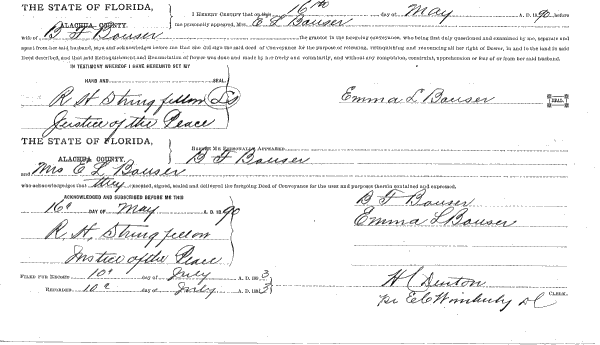 THE STATE OF FLORIDA,
ALACHUA COUNTY.
I HEREBY CERTIFY that on this 16th day of May A. D. 1890, before
me personally appeared, Mrs. E L Bouser
wife of B F Bouser the grantor in the foregoing conveyance, who being first duly questioned and examined by me, separate and
apart from her said husband, says and acknowledges before me that she did sign the said deed of conveyance for the purpose of releasing, relinquishing and renouncing all her right of Dower, in and to the land in said
Deed described, and that said Relinquishment and Renunciation of Dower was done and made by her freely and voluntarily, and without any compulsion, constraint, apprehension or fear of or from her said husband.
IN TESTIMONY WHEREOF I HAVE HEREUNTO SET MY
HAND AND SEAL.
R H Stringfellow LS
Justice of the Peace
Emma L Bouser SEAL.
THE STATE OF FLORIDA,
ALACHUA COUNTY.
BEFORE ME PERSONALLY APPEARED B F Bouser
and Mrs E L Bouser
who acknowledges that they executed, signed, sealed and delivered the foregoing Deed of Conveyance for the uses and purposes therein contained and expressed,
ACKNOWLEDGED AND SUBSCRIBED BEFORE ME THIS
16th DAY OF May A. D. 1890
R. H. Stringfellow
Justice of the Peace
B F Bouser
Emma L Bouser
FILED FOR RECORD 10th day of July A. D. 1893
RECORDED 10th day of July A. D. 1893
H C Denton
CLERK.
per E C Wimberly DC